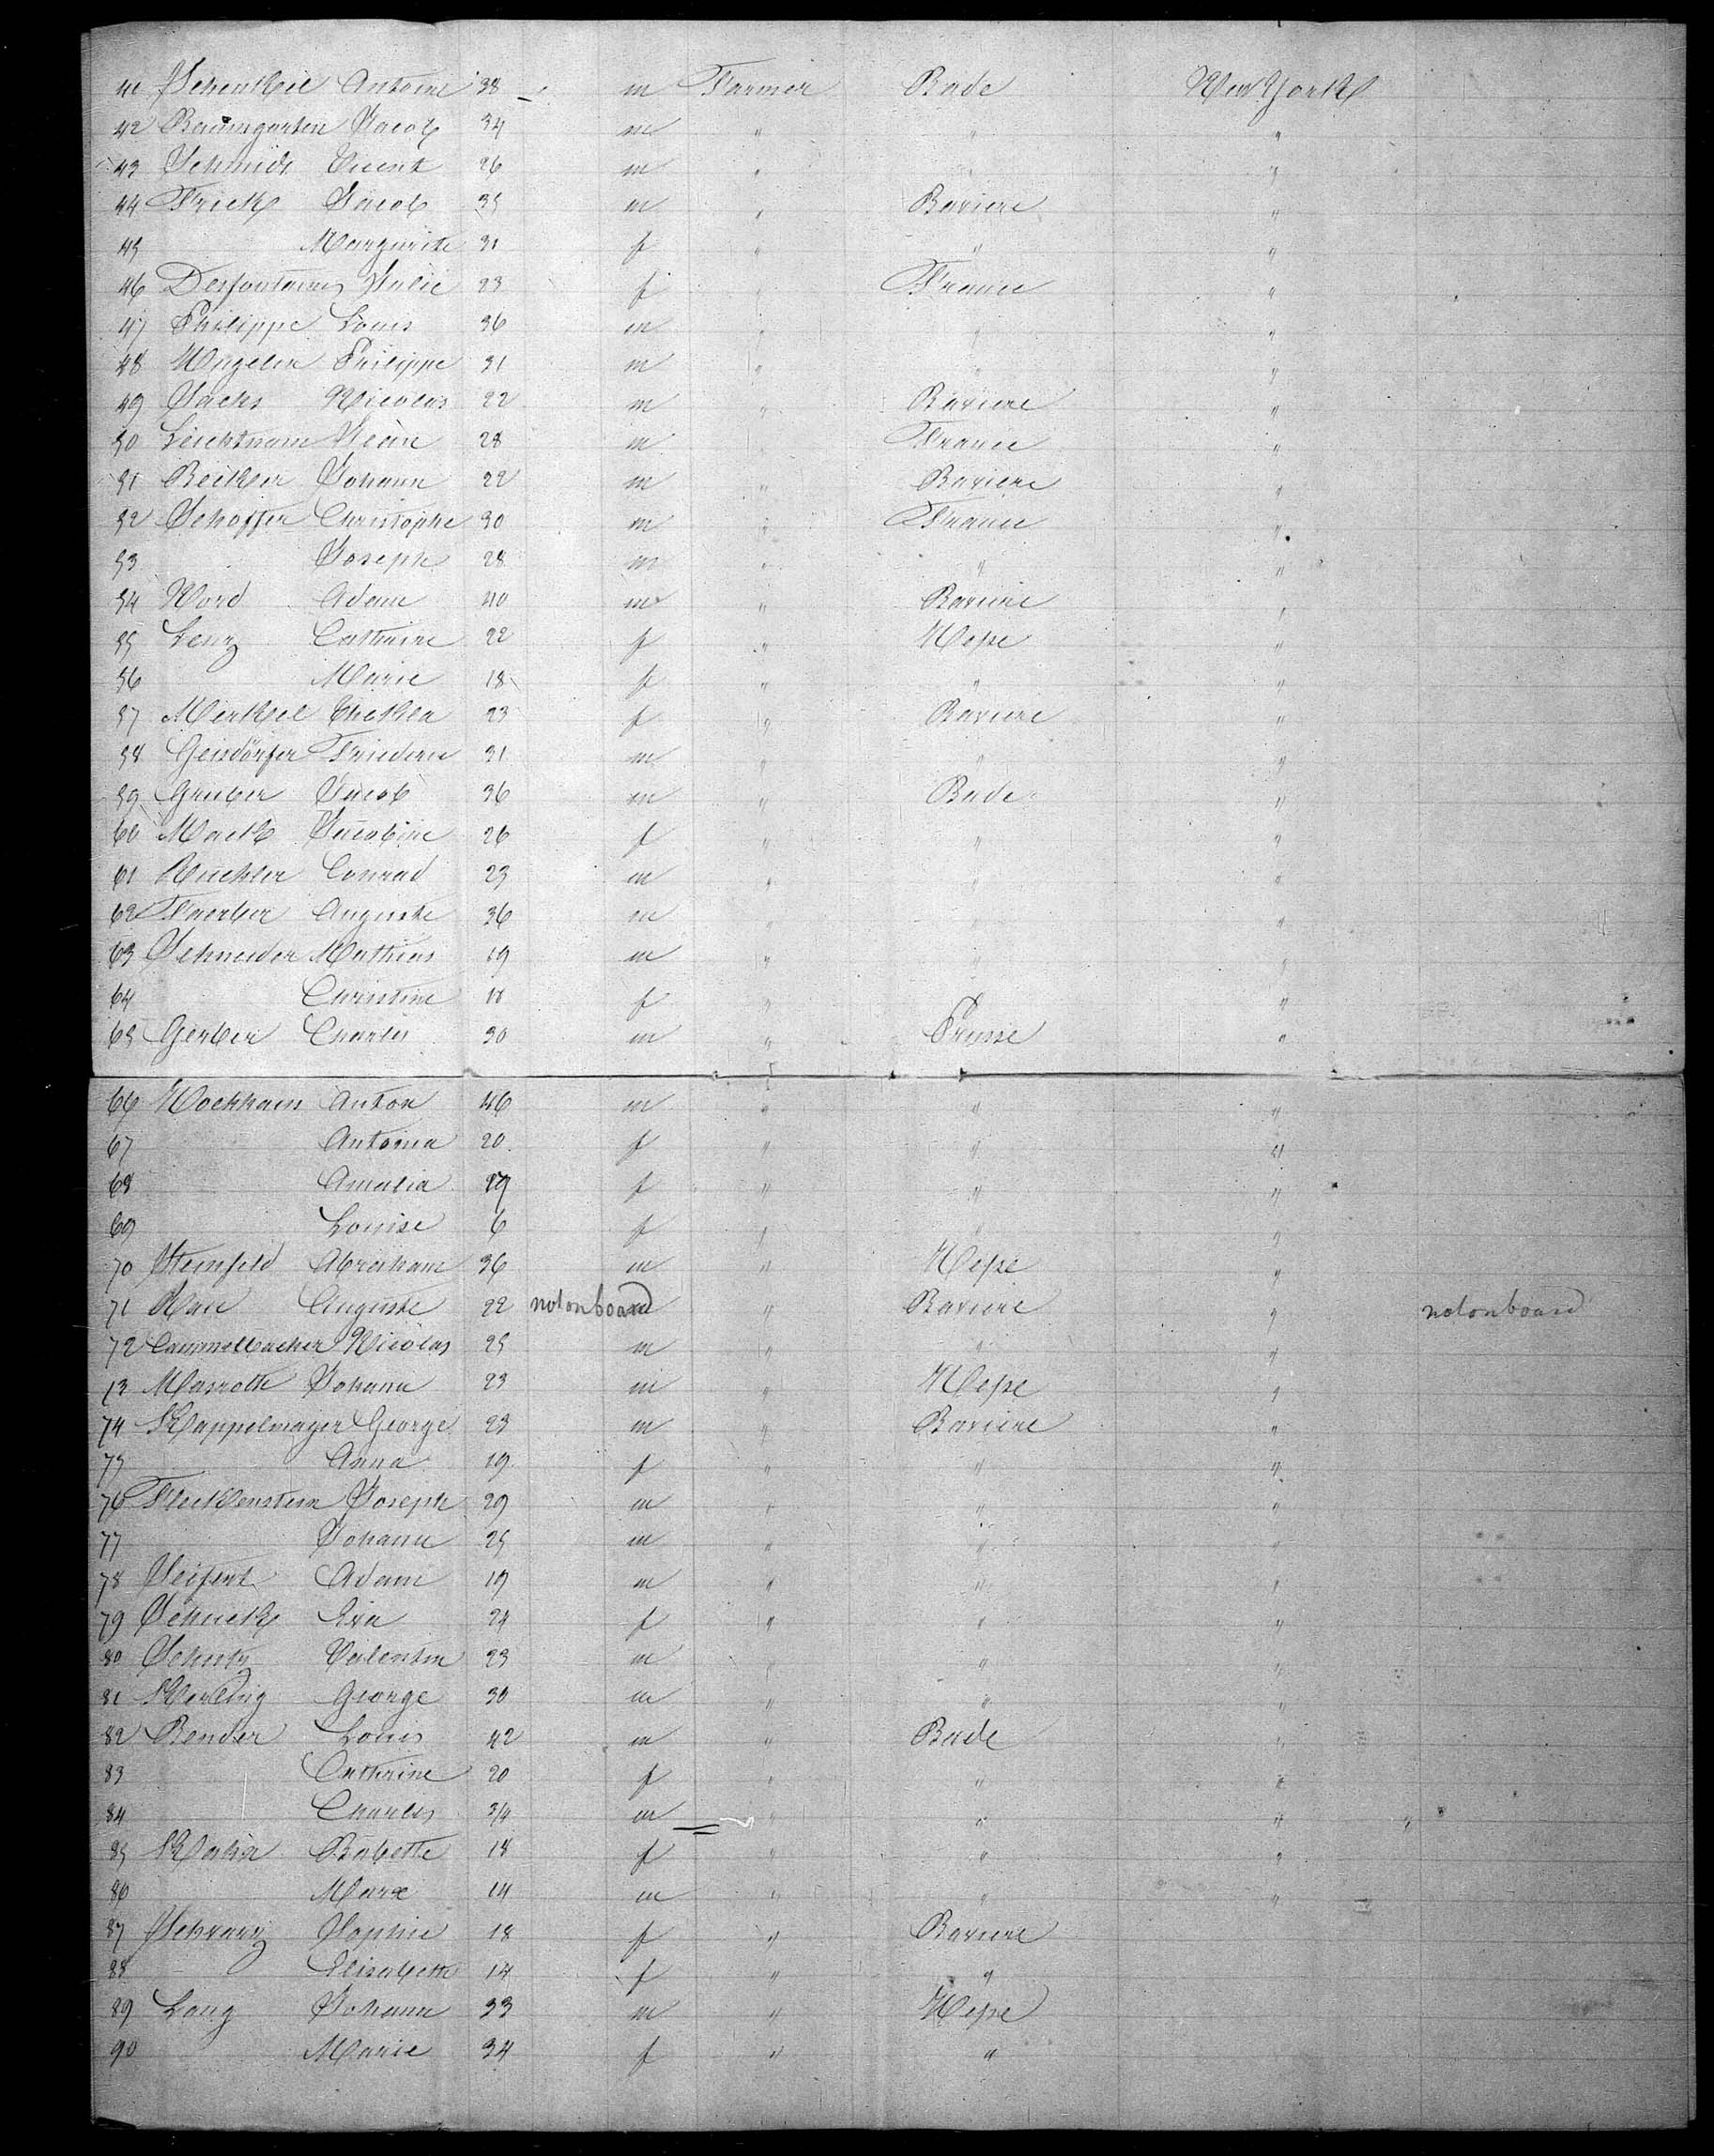 41 Schenkel Antoine 38 m Farmer Bade New York
42 Baumgarten Jacob 34 m " " "
43 Schmidt Vicent 26 m " " "
44 Frick Jacob 35 m " Baviere "
45 Margurite 31 f " " "
46 Desfontaines Julie 23 f " France "
47 Philippe Louis 36 m " " "
48 Philippe 31 m " " "
49 Sachs Nicolas 22 m " Baviere "
50 Leichtnam Jean 28 m " France "
51 Becker Johann 22 m " Baviere "
52 Schaffer Christophe 30 m " France "
53 Joseph 28 m " " "
54 Adam 40 m " Baviere "
55 Lenz Cathrine 22 f " Hesse "
56 Marie 18 f " " "
57 Merkel Thekla 23 f " Baviere "
58 Geisdörfer 31 m " " "
59 Gruber Jacob 36 m " Bade "
60 Mack Jacobine 26 f " " "
61 Conrad 23 m " " "
62 Faerber Auguste 36 m " " "
63 Schneider Mathias 19 m " " "
64 Christine 18 f " " "
65 Gerber Charles 30 m " Prusse "
66 Anton 46 m " " "
67 Antonia 20 f " " "
68 Amalia 19 f " " "
69 Louise 6 f " " "
70 Steinfeld Abraham 36 m " Hesse "
71 Auguste 22 not on board " Baviere " not on board
72 Cammelbacher Nicolas 25 m " " "
73 Johann 23 m " Hesse "
74 Kappelmayer George 23 m " Baviere "
75 Anna 19 f " " "
76 Fleckenstein Joseph 29 m " " "
77 Johann 25 m " " "
78 Seifert Adam 19 m " " "
79 Schuck Eva 24 f " " "
80 Valentin 23 m " " "
81 George 30 m " " "
82 Bender Louis 42 m " Bade "
83 Cathrine 20 f " " "
84 Charles 3/4 m " " " "
85 Kahn Babette 18 f " " "
86 Marx 14 m " " "
87 Sophie 18 f " Baviere
88 Elisabeth 14 f " "
89 Lang Johann 33 m " Hesse
90 Marie 34 f " "